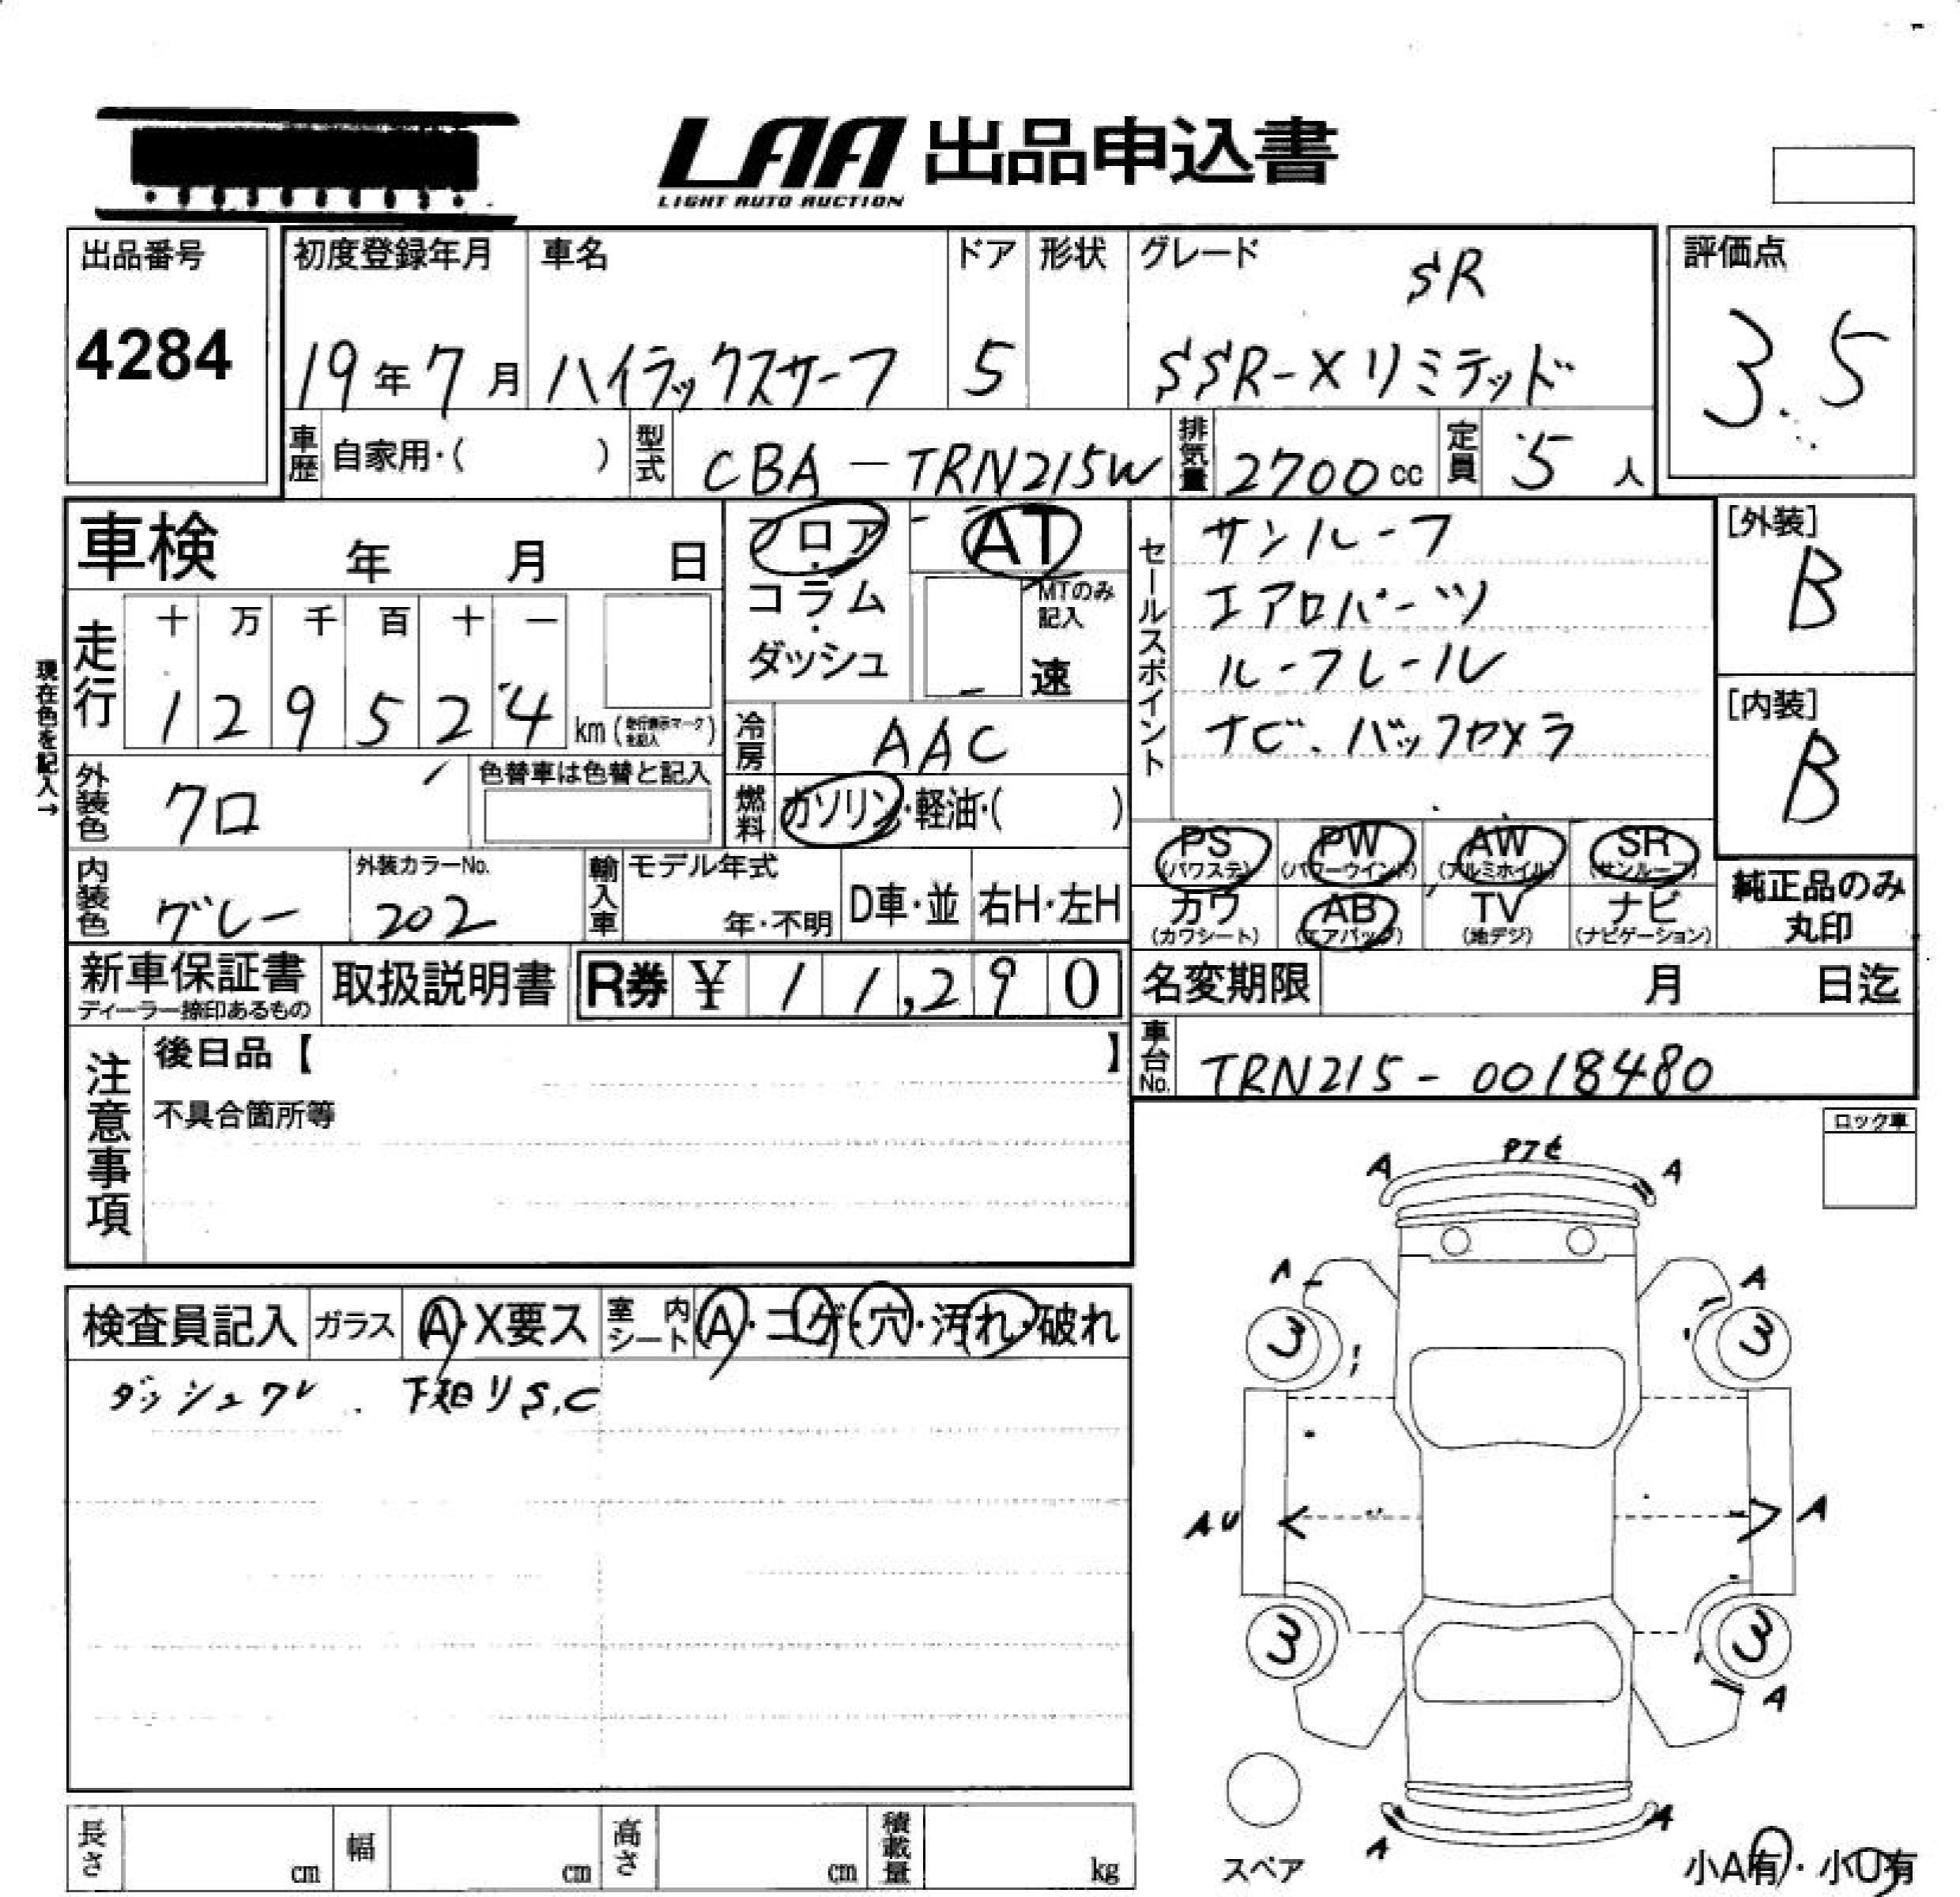 LAA 出品申込書
LIGHT AUTO AUCTION
出品番号
4284
初度登録年月
19年7月
車名
ハイラックスサーフ
ドア
5
形状
グレード
SR
SSR-Xリミテッド
評価点
3.5
車歴 自家用・( )
型式 CBA-TRN215W
排気量 2700cc
定員 5人
車検 年 月 日
フロア・
コラム・
ダッシュ
AT
MTのみ記入
速
セールスポイント
サンルーフ
エアロパーツ
ルーフレール
ナビ.バックカメラ
[外装]
B
[内装]
B
現在色を記入→
走行
十 万 千 百 十 一
1 2 9 5 2 4 km (走行表示マークを記入)
冷房 AAC
外装色 クロ
色替車は色替と記入
燃料 ガソリン・軽油・( )
PS (パワステ)
PW (パワーウインド)
AW (アルミホイル)
SR (サンルーフ)
カワ (カワシート)
AB (エアバッグ)
TV (地デジ)
ナビ (ナビゲーション)
純正品のみ
丸印
内装色 グレー
外装カラーNo.
202
輸入車 モデル年式
年・不明
D車・並
右H・左H
新車保証書
ディーラー捺印あるもの
取扱説明書
R券 ¥ 11,290
名変期限 月 日迄
車台No. TRN215-0018480
注意事項
後日品【 】
不具合箇所等
ロック車
検査員記入
ガラス A・X要ス
室内シート A・コゲ・穴・汚れ・破れ
ダッシュワレ . 下廻りS,C
A A
A A
3 3
AU A
3 3
A
A A
スペア
小A有・小U有
長さ cm
幅 cm
高さ cm
積載量 kg